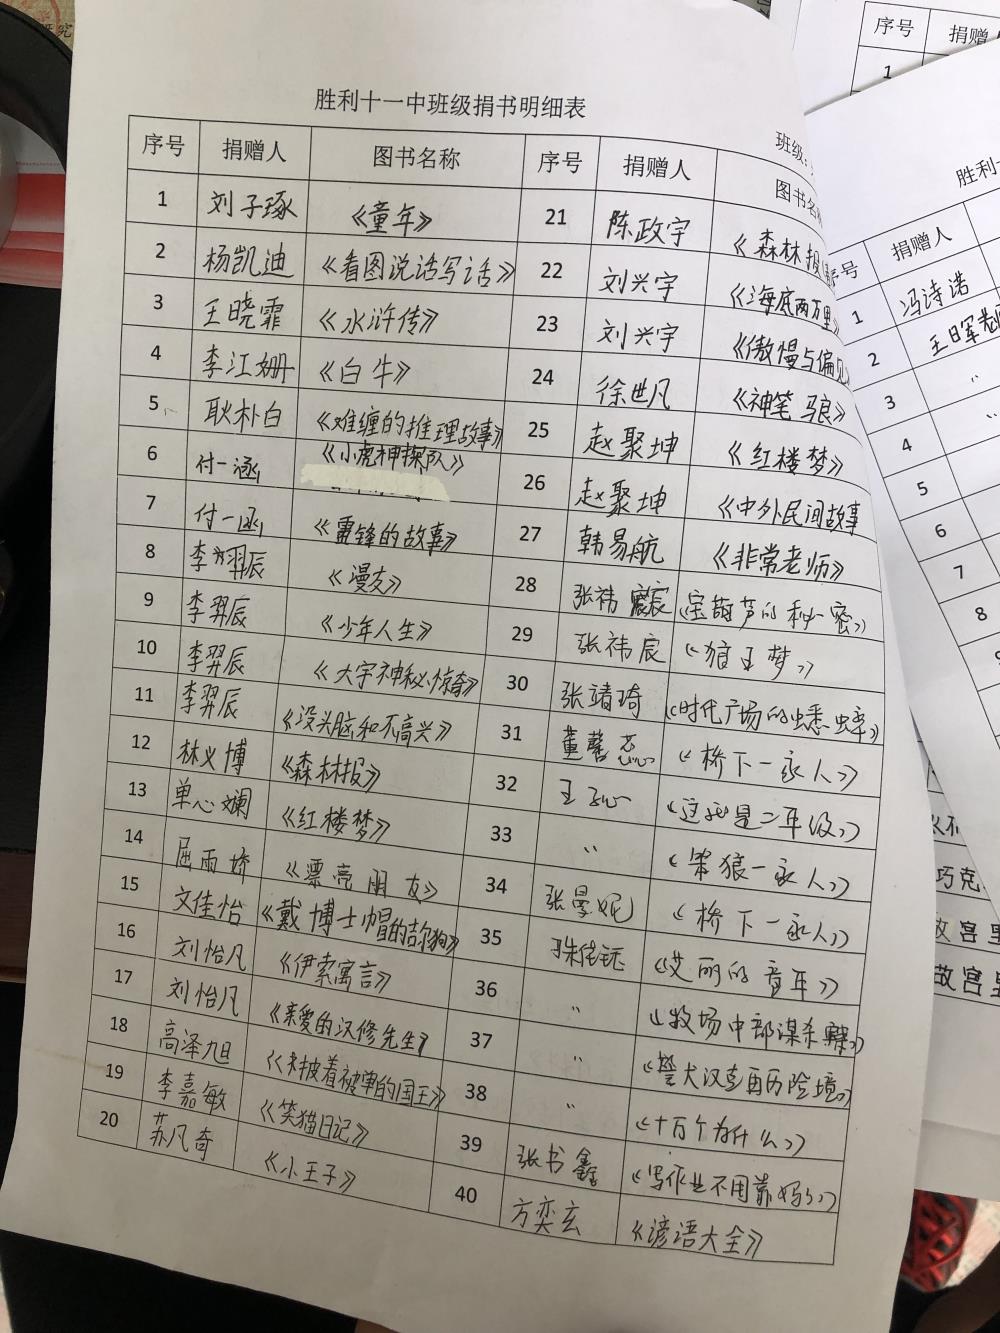 胜利十一中班级捐书明细表
班级:
序号 捐赠人 图书名称 序号 捐赠人 图书名
1 刘子琢 《童年》 21 陈政宇 《森林报
2 杨凯迪 《看图说话写话》 22 刘兴宇 《海底两万里
3 王晓霏 《水浒传》 23 刘兴宇 《傲慢与偏见
4 李江姗 《白牛》 24 徐世凡 《神笔马良》
5 耿朴白 《难缠的推理故事》 25 赵聚坤 《红楼梦》
6 付一涵 《小虎神探队》 26 赵聚坤 《中外民间故事
7 付一涵 《雷锋的故事》 27 韩易航 《非常老师》
8 李羿辰 《漫友》 28 张祎宸 《宝葫芦的秘密》
9 李羿辰 《少年人生》 29 张祎宸 《狼王梦》
10 李羿辰 《大宇神秘惊奇》 30 张靖琦 《时代广场的蟋蟀》
11 李羿辰 《没头脑和不高兴》 31 董馨蕊 《桥下一家人》
12 林义博 《森林报》 32 王 《这就是二年级》
13 单心斓 《红楼梦》 33 〃 《笨狼一家人》
14 屈雨娇 《漂亮朋友》 34 张曼妮 《桥下一家人》
15 文佳怡 《戴博士帽的吉狗》 35 《艾丽的童年》
16 刘怡凡 《伊索寓言》 36 〃 《牧场中部谋杀案》
17 刘怡凡 《亲爱的汉修先生》 37 〃 《警犬汉克再历险境》
18 高泽旭 《披着被单的国王》 38 〃 《十万个为什么》
19 李嘉敏 《笑猫日记》 39 张书鑫 《写作业不用靠妈妈》
20 苏凡奇 《小王子》 40 方奕玄 《谚语大全》
序号 捐赠人
1
胜利十
序号 捐赠人
1 冯诗诺
2 王日军老师
3 〃
4 〃
5
6
7
8
巧克
故宫里
故宫里